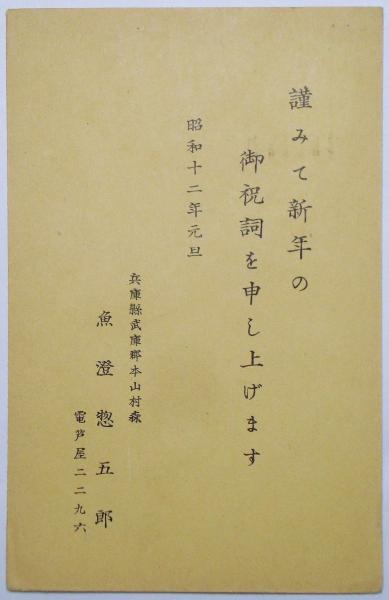 謹みて新年の
御祝詞を申し上げます
昭和十二年元旦
兵庫縣武庫郡本山村森
魚澄惣五郎
電芦屋二二九六